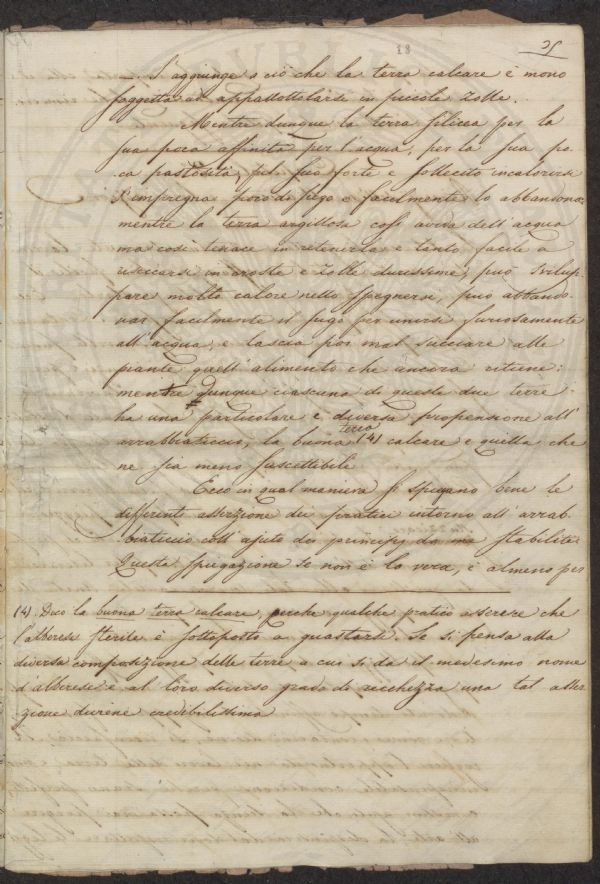 18
35
S'aggiunge a ciò che la terra calcare è meno
soggetta ad appallottolarsi in piccole zolle.
Mentre dunque la terra silicea per la
sua poca affinità per l'acqua, per la sua po
ca pastosità, pel suo forte e sollecito incalorirsi
s'impregna poco di sugo e facilmente lo abbandona;
mentre la terra argillosa così avida dell'acqua
ma così tenace in ritenerla e tanto facile a
risecarsi in croste e zolle durissime, può svilup
pare molto calore nello spegnersi, può abbando
nar facilmente il sugo per unirsi furiosamente
all'acqua, e lascia poi mal succiare alle
piante quell'alimento che ancora ritiene:
mentre dunque ciascuna di queste due terre
ha una particolare e diversa propensione all'
arrabbiaticcio, la buona terra (4) calcare è quella che
ne sia meno suscettibile
Ecco in qual maniera si spiegano bene le
differenti asserzione dei pratici intorno all'arrab-
biaticcio coll'ajuto dei principj da me stabiliti.
Questa spiegazione se non è la vera, è almeno per
(4). Dico la buona terra calcare, perchè qualche pratico asserere che
l'alberese sterile è sottoposto a guastarsi. Se si pensa alla
diversa composizione delle terre a cui si da il medesimo nome
d'alberese e al loro diverso grado di secchezza una tal asser
zione diviene credibilissima